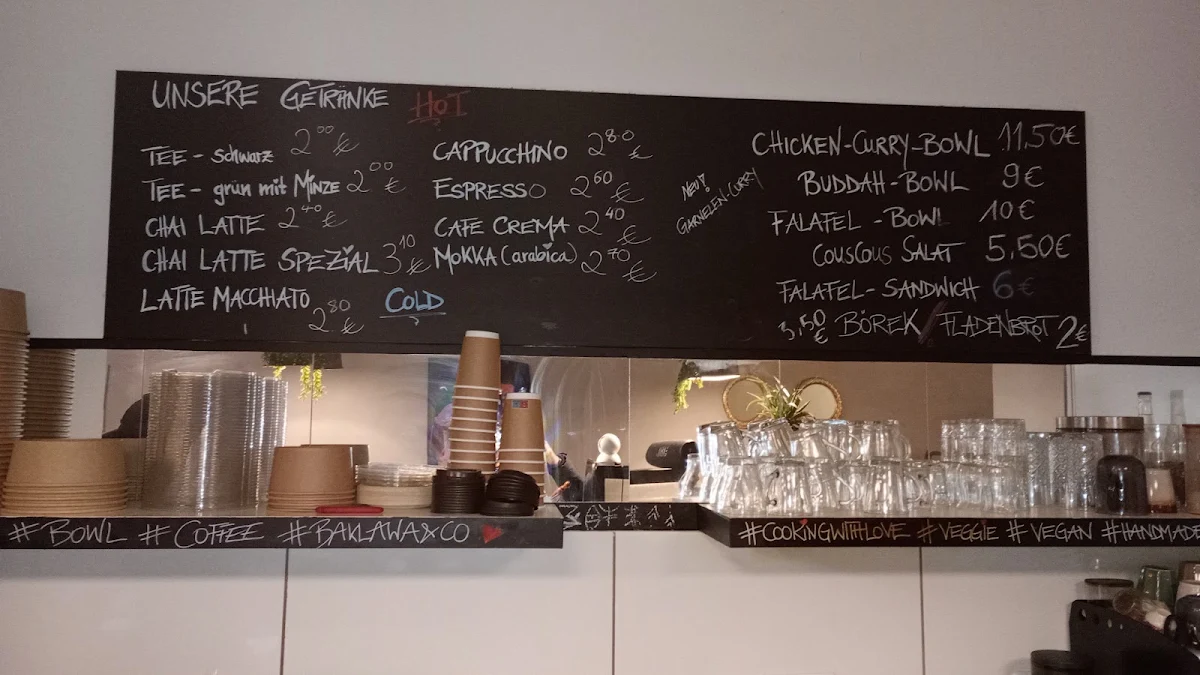 UNSERE GETRÄNKE HOT
TEE - schwarz 2⁰⁰ €
TEE - grün mit MINZE 2⁰⁰ €
CHAI LATTE 2⁴⁰ €
CHAI LATTE SPEZIAL 3¹⁰ €
LATTE MACCHIATO 2⁸⁰ €
COLD
CAPPUCCHINO 2⁸⁰ €
ESPRESSO 2⁶⁰ €
CAFE CREMA 2⁴⁰ €
MOKKA (arabica) 2⁷⁰ €
NEU!
GARNELEN-CURRY
CHICKEN-CURRY-BOWL 11,50€
BUDDAH-BOWL 9€
FALAFEL -BOWL 10€
COUSCOUS SALAT 5,50€
FALAFEL-SANDWICH 6€
3,50 € BÖREK / FLADENBROT 2€
#BOWL #COFFEE #BAKLAWA&CO
#COOKINGWITHLOVE #VEGGIE #VEGAN #HANDMADE